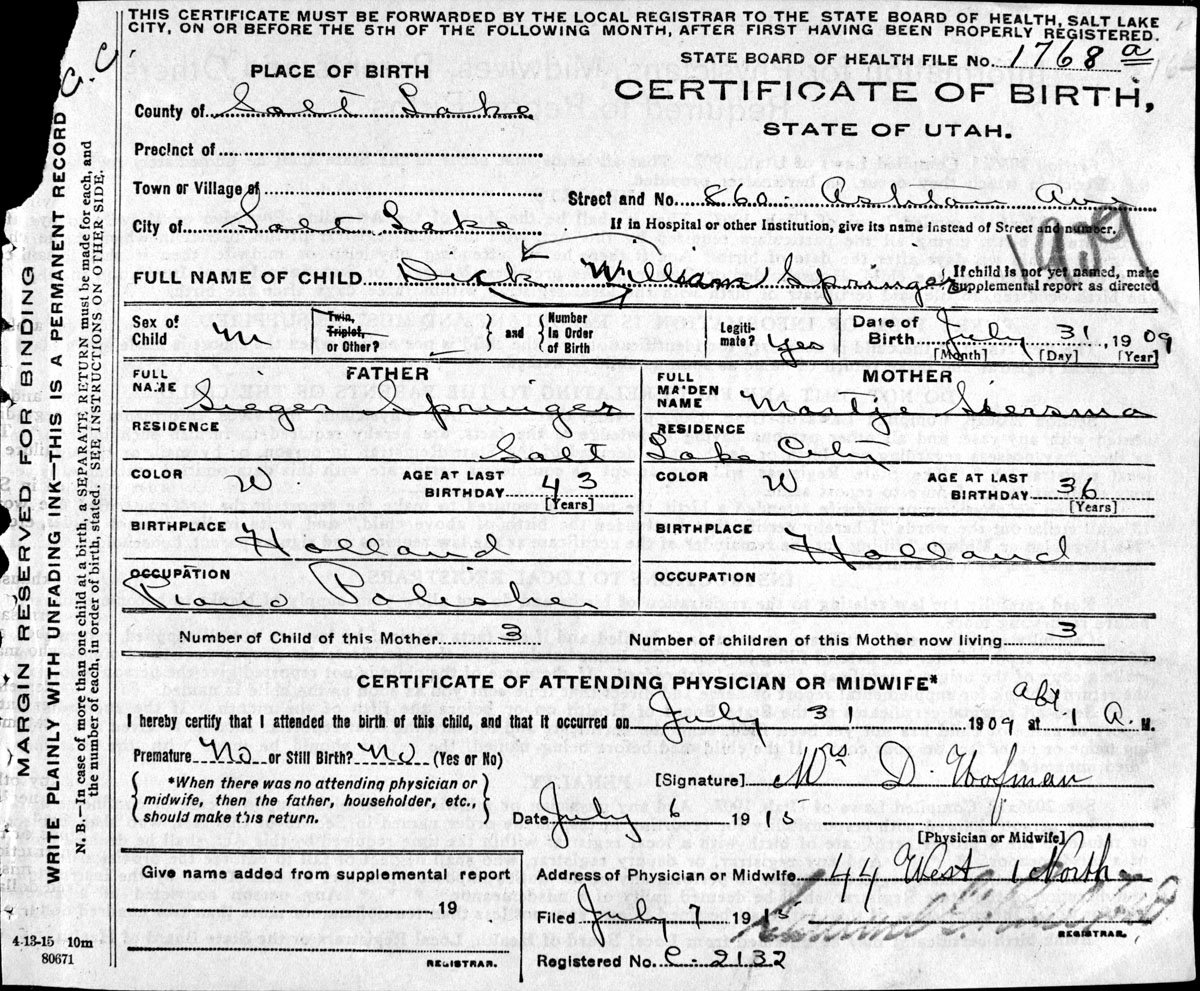 THIS CERTIFICATE MUST BE FORWARDED BY THE LOCAL REGISTRAR TO THE STATE BOARD OF HEALTH, SALT LAKE
CITY, ON OR BEFORE THE 5TH OF THE FOLLOWING MONTH, AFTER FIRST HAVING BEEN PROPERLY REGISTERED.
STATE BOARD OF HEALTH FILE No. 1768 a
PLACE OF BIRTH
CERTIFICATE OF BIRTH,
STATE OF UTAH.
County of Salt Lake
Precinct of
Town or Village of
Street and No. 860 Ashton Ave
City of Salt Lake
If in Hospital or other Institution, give its name instead of Street and number.
1909
FULL NAME OF CHILD Dick William Springer
If child is not yet named, make supplemental report as directed
Sex of Child M
Twin, Triplet, or Other?
and
Number in Order of Birth
Legitimate? yes
Date of Birth July 31, 1909
[Month] [Day] [Year]
FATHER
MOTHER
FULL NAME Sieger Springer
FULL MAIDEN NAME Martje Siersma
RESIDENCE Salt
RESIDENCE Lake City
COLOR W.
AGE AT LAST BIRTHDAY 43
[Years]
COLOR W
AGE AT LAST BIRTHDAY 36
[Years]
BIRTHPLACE Holland
BIRTHPLACE Holland
OCCUPATION Piano Polisher
OCCUPATION
Number of Child of this Mother 3
Number of children of this Mother now living 3
CERTIFICATE OF ATTENDING PHYSICIAN OR MIDWIFE*
I hereby certify that I attended the birth of this child, and that it occurred on July 31 1909 at abt. 1 A. M.
Premature No or Still Birth? No (Yes or No)
*When there was no attending physician or
midwife, then the father, householder, etc.,
should make this return.
[Signature] Mrs D. Hofman
Date July 6 1915
[Physician or Midwife]
Give name added from supplemental report
Address of Physician or Midwife 44 West 1 North
19
Filed July 7 1915
REGISTRAR.
REGISTRAR.
Registered No. C-2132
4-13-15 10m
80671
MARGIN RESERVED FOR BINDING
WRITE PLAINLY WITH UNFADING INK—THIS IS A PERMANENT RECORD
N. B.—In case of more than one child at a birth, a SEPARATE RETURN must be made for each, and
the number of each, in order of birth, stated. SEE INSTRUCTIONS ON OTHER SIDE.